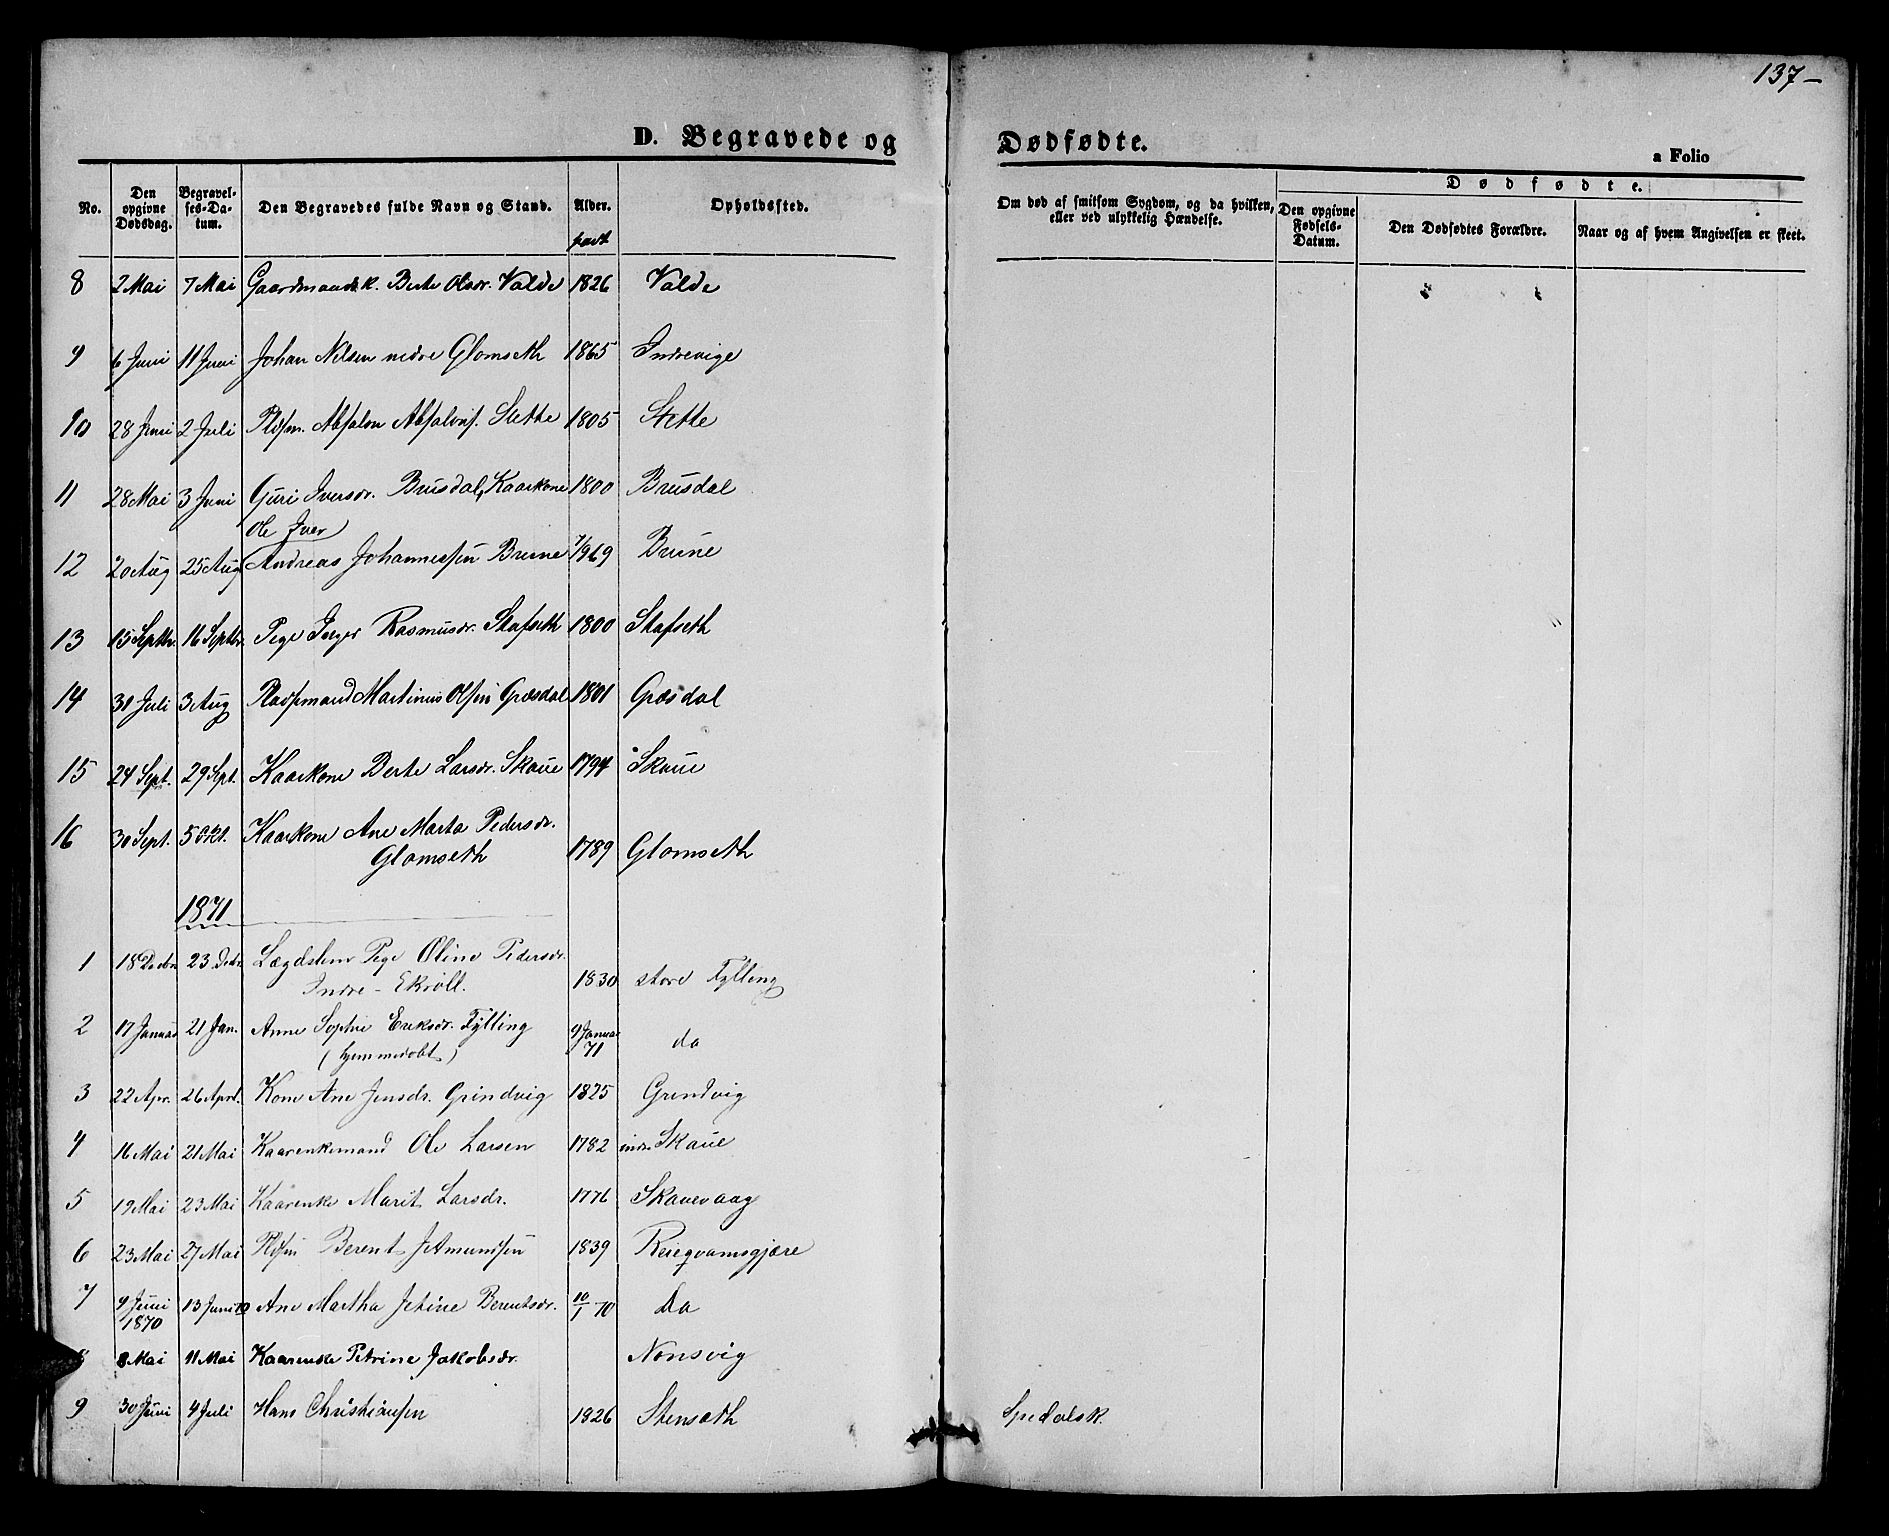 137-
D. Begravede og Dødfødte.
a Folio
No. Den opgivne Dødsdag. Begravelses-Datum. Den Begravedes fulde Navn og Stand. Alder. Opholdssted. Om død af smitsom Sygdom, og da hvilken, eller ved ulykkelig Hændelse. Dødfødte. Den opgivne Fødsels-Datum. Den Dødfødtes Forældre. Naar og af hvem Angivelsen er skeet.
født
8 2 Mai 7 Mai Gaardmandsk. Berte Olsdr. Valde 1826 Valde
9 6 Juni 11 Juni Johan Nilsen nedre Glomseth 1865 Indrevige
10 28 Juni 2 Juli Absalon Absalons. Slette 1805 Slette
11 28 Mai 3 Juni Guri Iversdr. Brusdal, Kaarkone 1800 Brusdal
Ole Iver
12 20 Aug 25 Aug Andreas Johannessen Brune 7/9 69 Brune
13 15 Septbr. 16 Septbr. Pige Inger Rasmusdr. Stafseth 1800 Stafseth
14 31 Juli 3 Aug Pladsmand Martinus Olsen Græsdal 1801 Græsdal
15 24 Sept. 29 Sept. Kaarkone Berte Larsdr. Skaue 1794 Skaue
16 30 Sept. 5 Okt. Kaarkone Ane Marta Pedersdr.
Glomseth 1789 Glomseth
1871
1 18 Decbr 23 Decbr Lægdslem Pige Oline Pedersdr.
Indre-Ekroll. 1830 store Fylling
2 17 Januar 21 Jan. Anne Sophie Eriksdr. Fylling 9 Januar
(hjemmedøbt) 71 do
3 22 Apr. 26 Aprl. Kone Ane Jensdr. Grindvig 1825 Grindvig
4 16 Mai 21 Mai Kaarenkemand Ole Larsen 1782 indre Skaue
5 19 Mai 23 Mai Kaarenke Marit Larsdr. 1776 Skauevaag
6 23 Mai 27 Mai Berent Jetmundsen 1839 Reiegvamsgjære
7 9 Juni 13 Juni 70 Ane Martha Jetine Berentsdr. 10/1 70 Do
1870
8 8 Mai 11 Mai Kaarenke Petrine Jakobsdr. Nonsvig
9 30 Juni 4 Juli Hans Christiansen 1826 Stenseth Spedalsk.